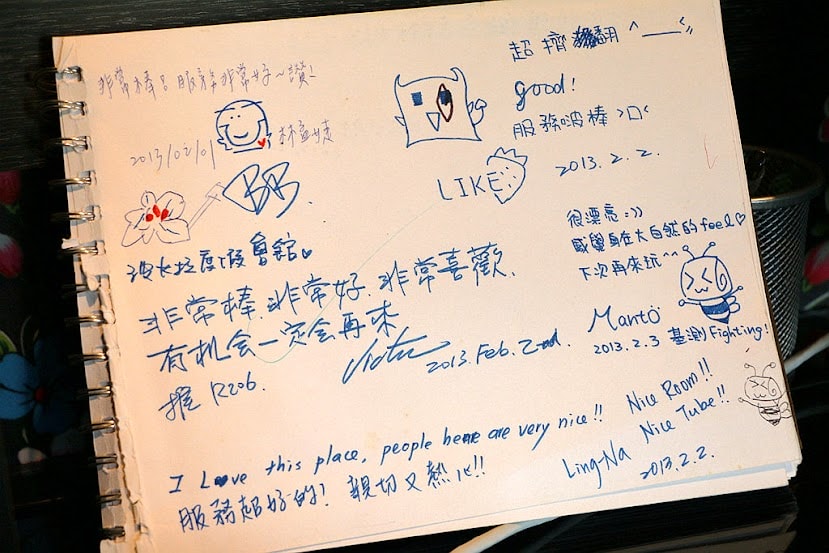 非常棒！服務非常好～讚！
2013/02/01
超擠翻 ^___^
good!
服務啵棒 >口<
2013. 2. 2.
BB.
LIKE
很漂亮 :))
感覺身在大自然的feel♡
下次再來玩^^
Manto
2013.2.3 基測Fighting!
渡假會館♥
非常棒.非常好.非常喜歡.
有机会一定会再来
Victor 2013.Feb.2nd.
握 R206.
I Love this place, people here are very nice!! Nice Room!!
Nice Tube!!
服務超好的! 親切又熱心!!
LingNa
2013.2.2.